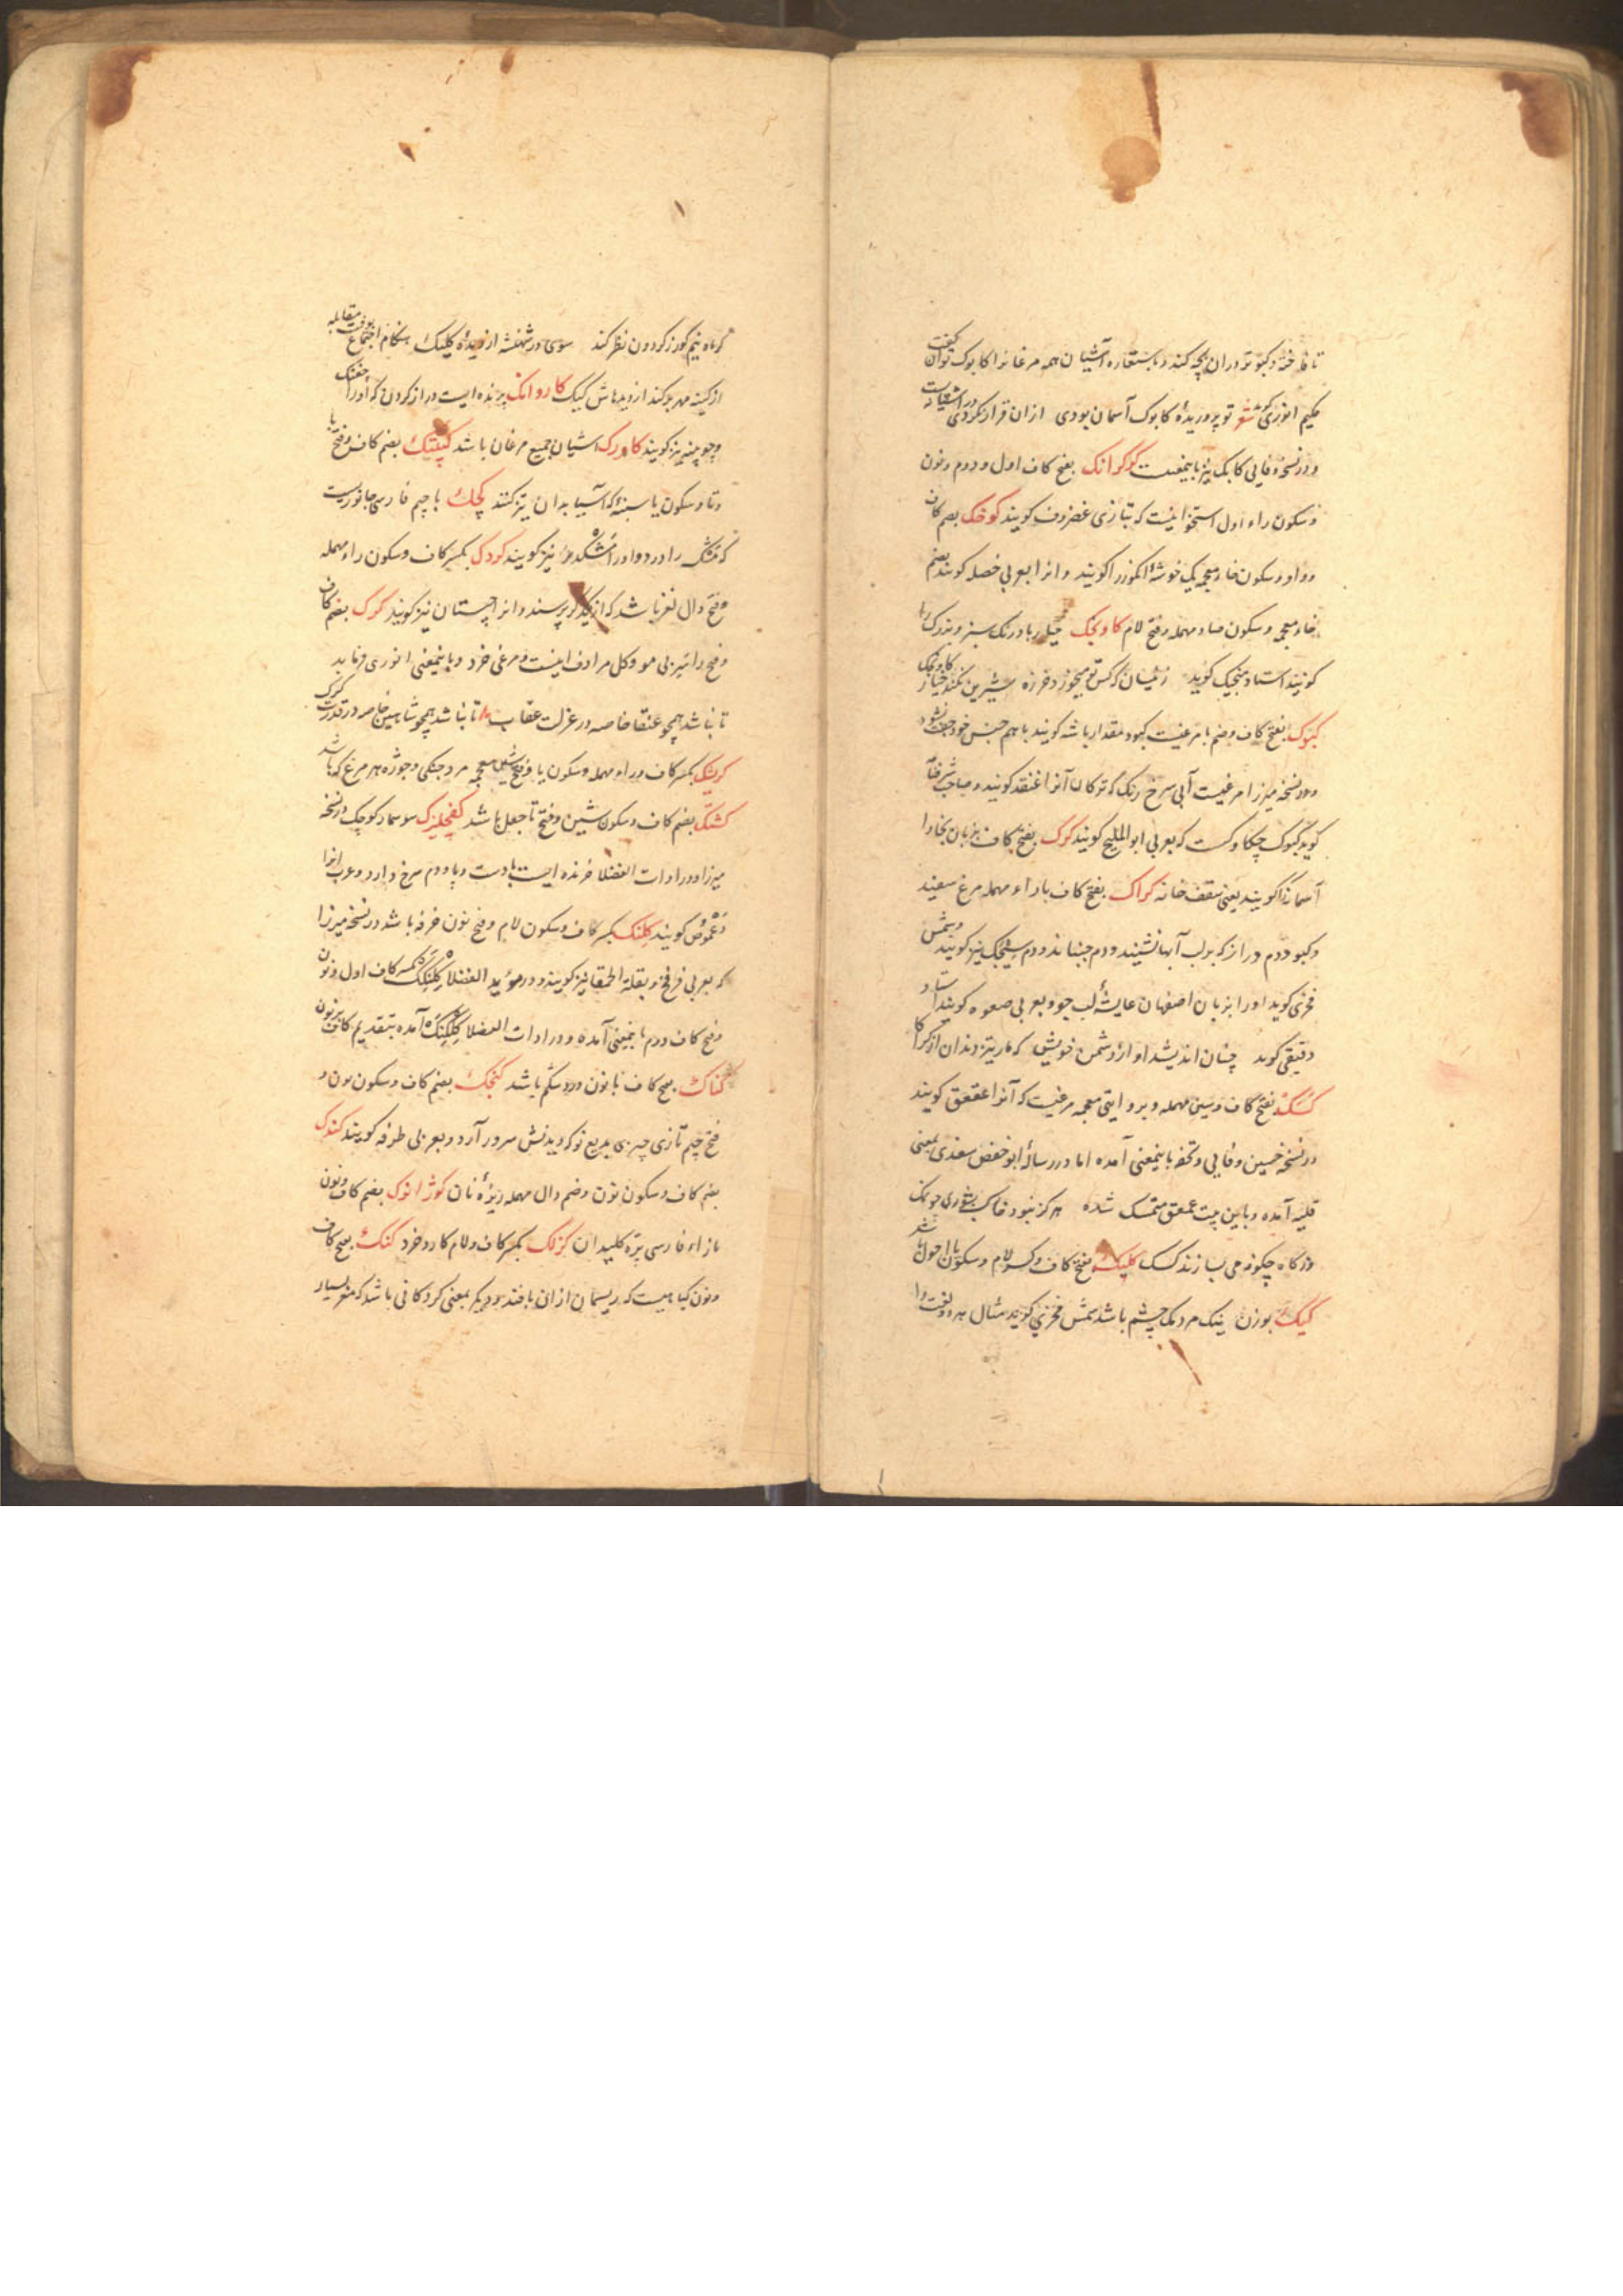 تا فاخته و کبوتر در ان بچه کند و باستعاره آشیان همه مرغانرا کابوک توان گفت
حکیم انوری گوید شعر تو پروریدهٔ کابوک آسمان بودی ازان قرار نکردی در آشیانه
و در نسخه وفایی کابک نیز باینمعنیست کوکرانک بفتح کاف اول و دوم و نون
و سکون راء اول استخوانیست که بتازی غضروف گویند کوخک بضم کاف
و واو و سکون خاء معجمه یک خوشهٔ انگور را گویند و انرا بعربی خصله گویند بضم
خاء معجمه و سکون صاد مهمله و فتح لام کاونجک خیار بادرنک سبز و تدرک را
گویند استاد منجیک گوید
کبوک بفتح کاف و ضم با مرغیست کبود مقدار باشه گویند با هم جنس خود جفت نشود
و در نسخه میرزا مرغیست آبی سرخ رنگ که ترکان آنرا عنقد گویند و صاحب
گوید کبوک چکاوکست که بعربی ابو الملیح گویند کرک بفتح کاف بزبان بخارا
آسمانه را گویند یعنی سقف خانه کراک بفتح کاف با راء مهمله مرغ سفید
و کبود و دم دراز که بر لب آبها نشیند و دم جنباند و دم سیجک نیز گویند و شمس
فخری گوید او را بزبان اصفهان عایشهٔ لب جو و بعربی صعوه گویند استاد
دقیقی گوید چنان اندیشد او از دشمن خویش که باز تیز دندان از کراکا
کسک بفتح کاف و سین مهمله و بروایتی معجمه مرغیست که آنرا عقعق گویند
در نسخه حسین وفایی و تحفه باینمعنی آمده اما در رساله ابو حفص سغدی بمعنی
قلیه آمده و باین بیت عمعق متمسک شده هرگز نبود
در کاه چگونه می بسازند کسک کلیک بفتح کاف و کسر لام و سکون یا احول باشد
کیک بوزن نیک مردمک چشم باشد شمس فخری گوید مثال هر دو لغت را
گر ماه نیم کور ز گردون نظر کند سوی در شهنشه از دیدهٔ کلیک هنگام اجتماع بوقت مقابله
از کینه مهر برکند از دیدهاش کیک کاروانک پرنده ایست دراز گردن که او را چفتک
و چوبینه نیز گویند کاورک آشیان جمیع مرغان باشد کپیتک بضم کاف و فتح با
و تا و سکون یا سینهٔ که آسیا بدان تیز کنند کچک با جیم فارسی جانوریست
که مشک را در دو او را مشکدو نیز گویند کردک بکسر کاف و سکون راء مهمله
و فتح دال لغز باشد که از یکدیگر پرسند و انرا چیستان نیز گویند کرک بضم کاف
و فتح را شیر بی مو و کل مرادف اینست و مرغی خرد و باینمعنی انوری فرماید
تا نباشد همچو عنقا خاصه در عزلت عقاب تا نباشد همچو شاهین خاصه در قدرت کرک
کریشک بکسر کاف و راء مهمله و سکون یا و فتح شین معجمه مرد جنکی و جوژه هر مرغ که باشد
کشتک بضم کاف و سکون شین و فتح تا جعل باشد کفچلیزک سوسمار کوچک در نسخه
میرزا و در ادات الفضلا خزنده ایست با دست و پا و دم سرخ دارد و عرب انرا
دعموص گویند کلنک بکسر کاف و سکون لام و فتح نون خرفه باشد در نسخه میرزا
که بعربی فرفخ و بقلة الحمقا نیز گویند و در موید الفضلا کلنکک بکسر کاف اول و نون
و فتح کاف دوم باینمعنی آمده و در ادات الفضلا کلکنک آمده بتقدیم کاف بر نون
کناک بفتح کاف با نون درد شکم باشد کنجک بضم کاف و سکون نون و
فتح جیم تازی چیزی بدیع نو که دیدنش سرور آرد و بعربی طرفه گویند کندک
بضم کاف و سکون نون و ضم دال مهمله ریزهٔ نان کوژانوک بضم کاف و نون
با زاء فارسی پره کلیدان کزلک بکسر کاف و لام کارد خرد کنک بفتح کاف
و نون کیاهیست که ریسمان از ان بافند و دیگر بمعنی گردکانی باشد که مغز بسیار